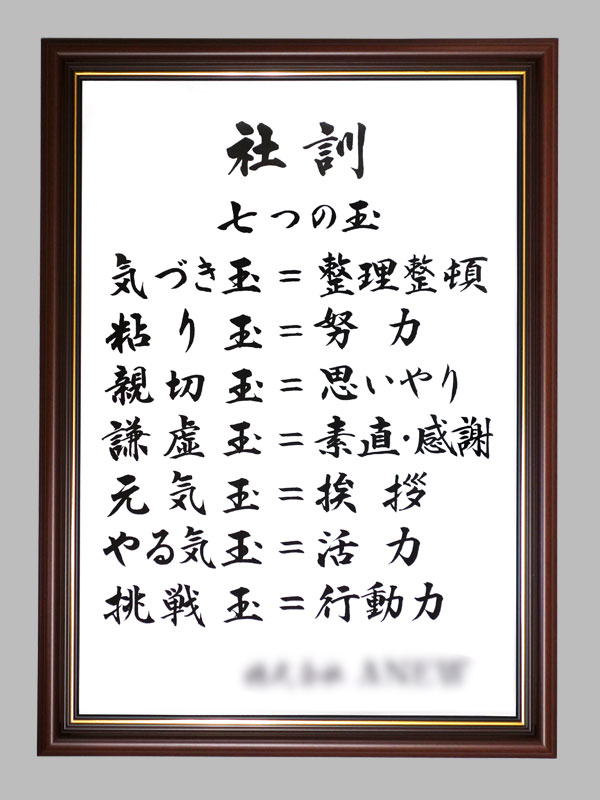 社訓
七つの玉
気づき玉=整理整頓
粘り玉=努力
親切玉=思いやり
謙虚玉=素直・感謝
元気玉=挨拶
やる気玉=活力
挑戦玉=行動力